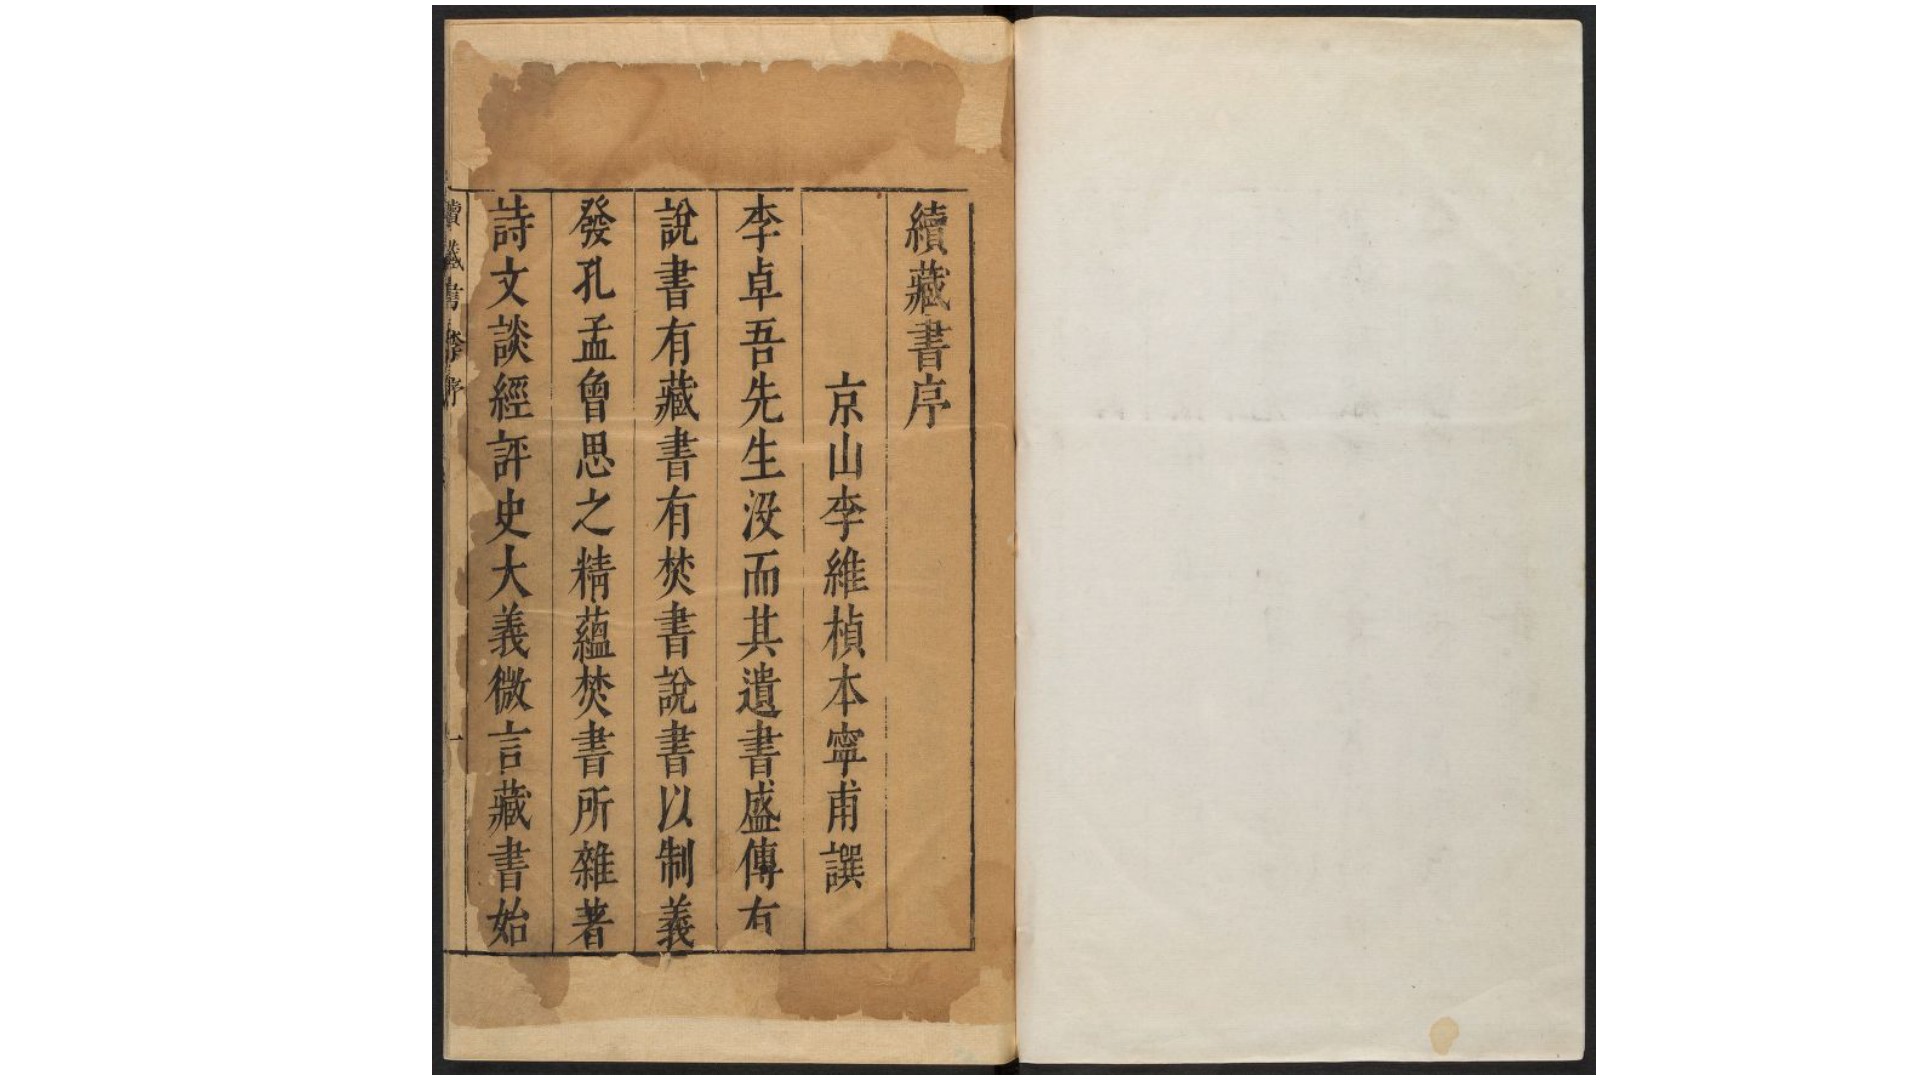 續藏書序
京山李維楨本寧甫譔
李卓吾先生沒而其遺書盛傳有
說書有藏書有焚書說書以制義
發孔孟曾思之精蘊焚書所雜著
詩文談經評史大義微言藏書始
續藏書 序 一